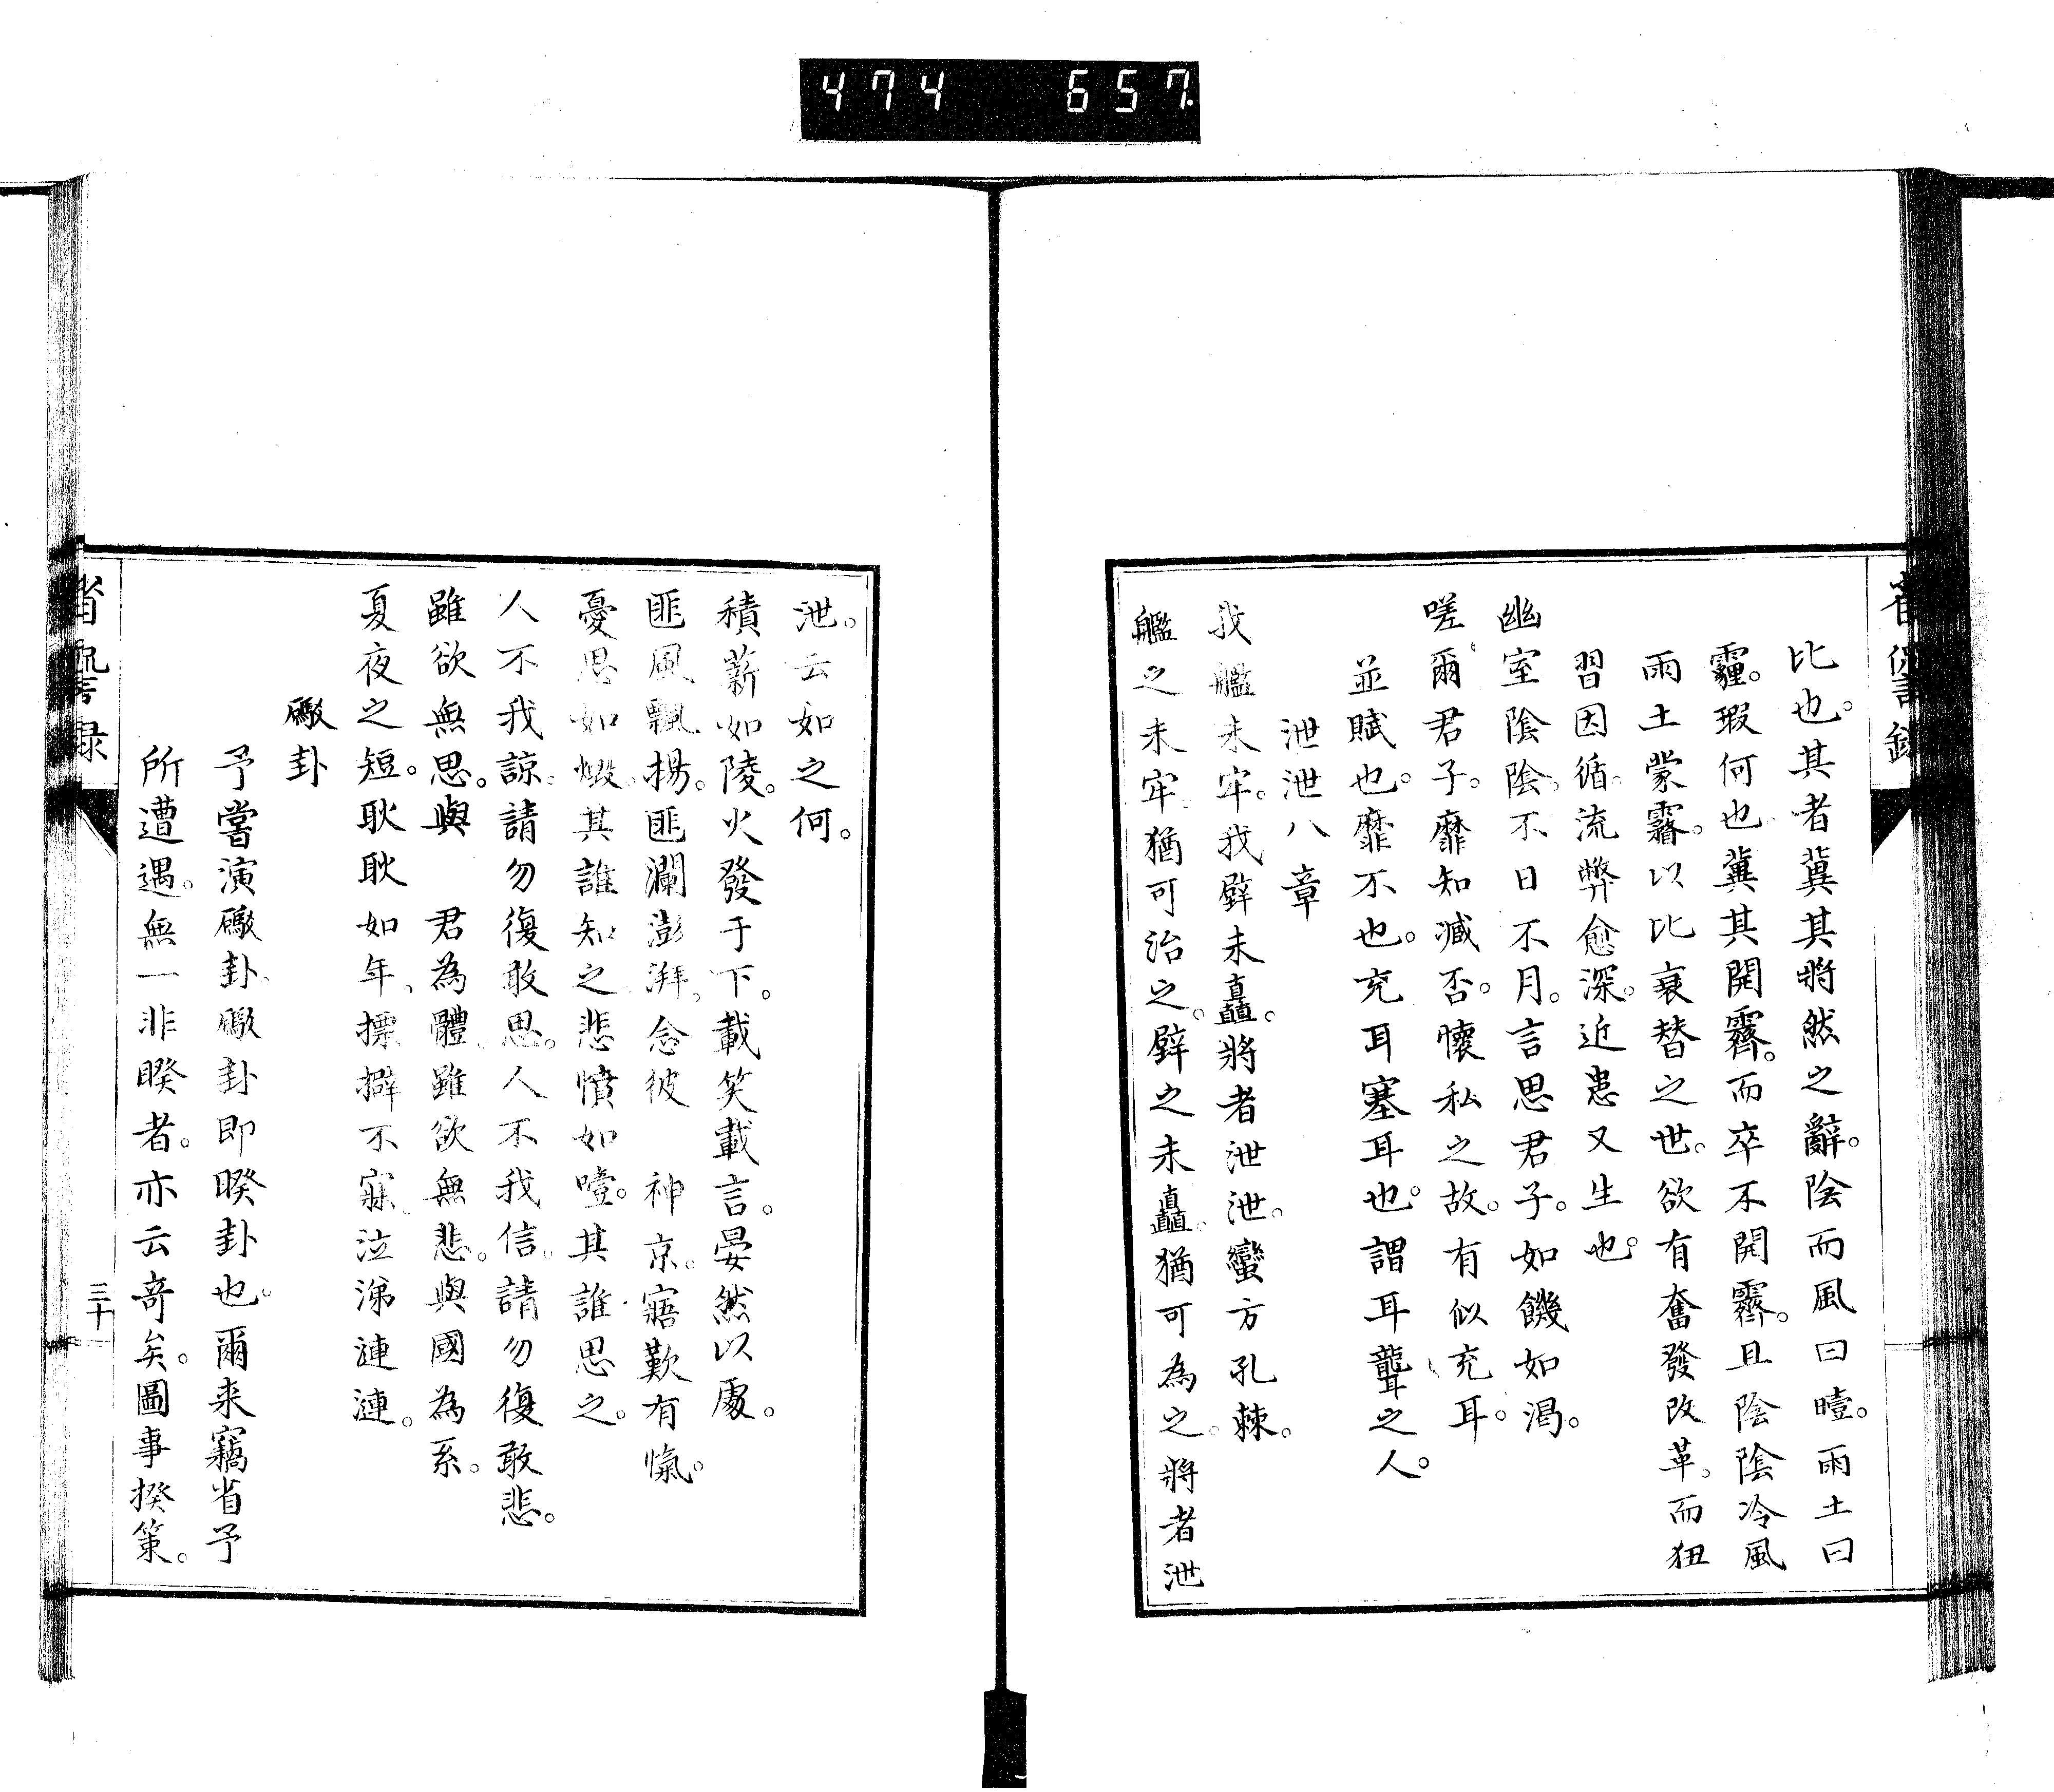 474 657
省𠍴録
比也。其者冀其將然之辭。陰而風曰曀。雨土曰
霾。瑕何也。冀其開霽。而卒不開霽。且陰陰冷風
雨土蒙霿。以比衰替之世。欲有奮發改革。而狃
習因循。流弊愈深。近患又生也。
幽室陰陰。不日不月。言思君子。如饑如渴。
嗟爾君子。靡知臧否。懷私之故。有似充耳。
並賦也。靡不也。充耳塞耳也。謂耳聾之人。
泄泄八章
我艦未牢。我壁未矗。將者泄泄。蠻方孔棘。
艦之未牢。猶可治之。壁之未矗。猶可為之。將者泄
泄。云如之何。
積薪如陵。火發于下。載笑載言。晏然以處。
匪風飄揚。匪瀾澎湃。念彼 神京。寤歎有愾。
憂思如燬。其誰知之。悲憤如噎。其誰思之。
人不我諒。請勿復敢思。人不我信。請勿復敢悲。
雖欲無思。與 君為體。雖欲無悲。與國為系。
夏夜之短。耿耿如年。摽擗不寐。泣涕漣漣。
礮卦
予嘗演礮卦。礮卦即睽卦也。爾来竊省予
所遭遇。無一非睽者。亦云奇矣。圖事揆策。
省𠍴録
三十